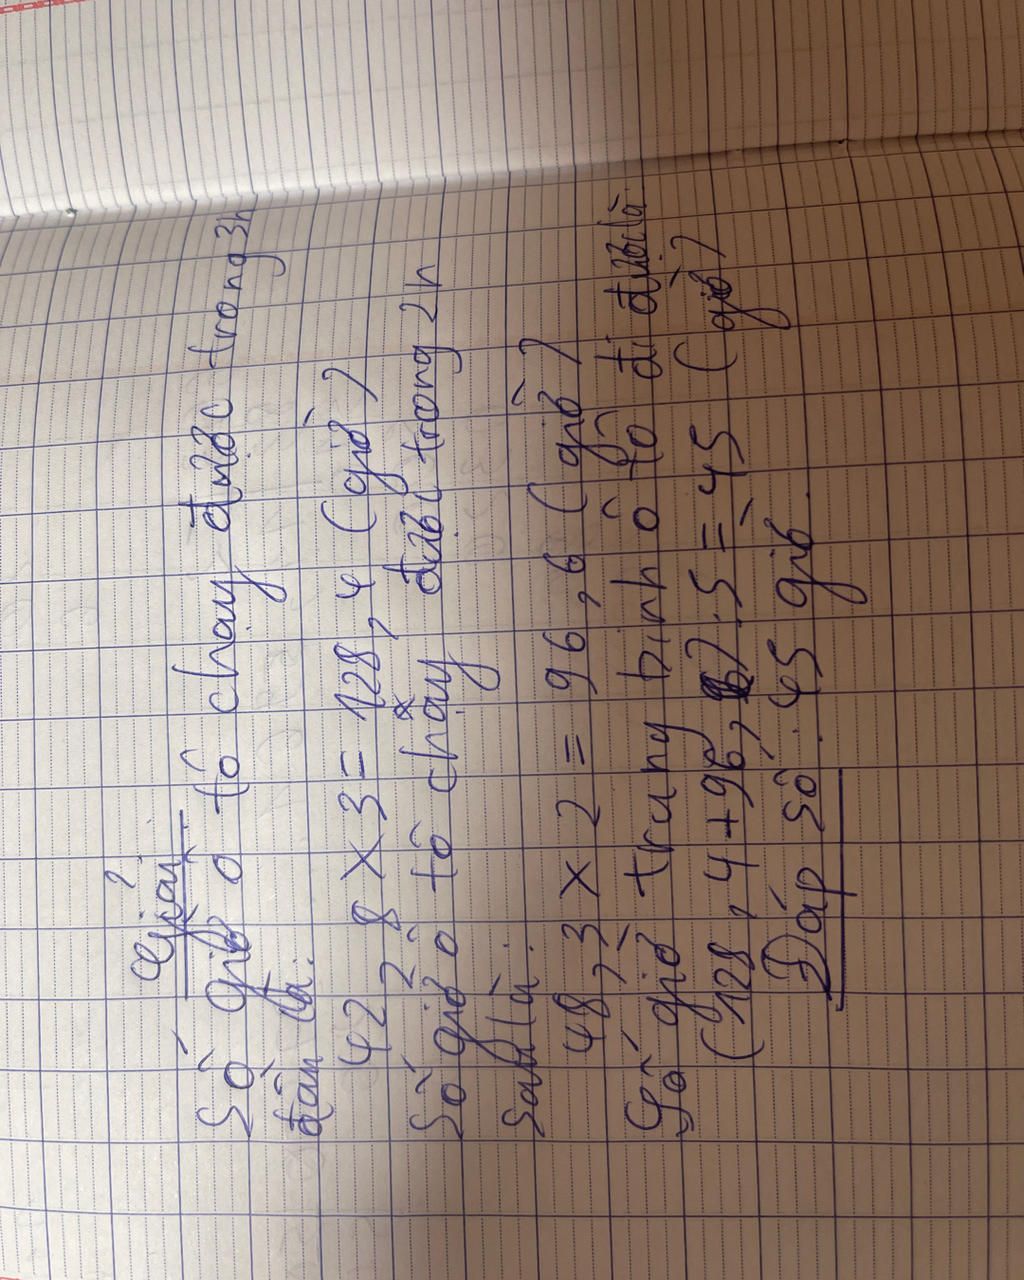 Giải
Số giờ ô tô chạy được trong 3h
đầu là:
42,8 x 3 = 128,4 (giờ)
Số giờ ô tô chạy được trong 2h
sau là:
48,3 x 2 = 96,6 (giờ)
Số giờ trung bình ô tô đi được là
(128,4 + 96,6) : 5 = 45 (giờ)
Đáp số: 45 giờ.